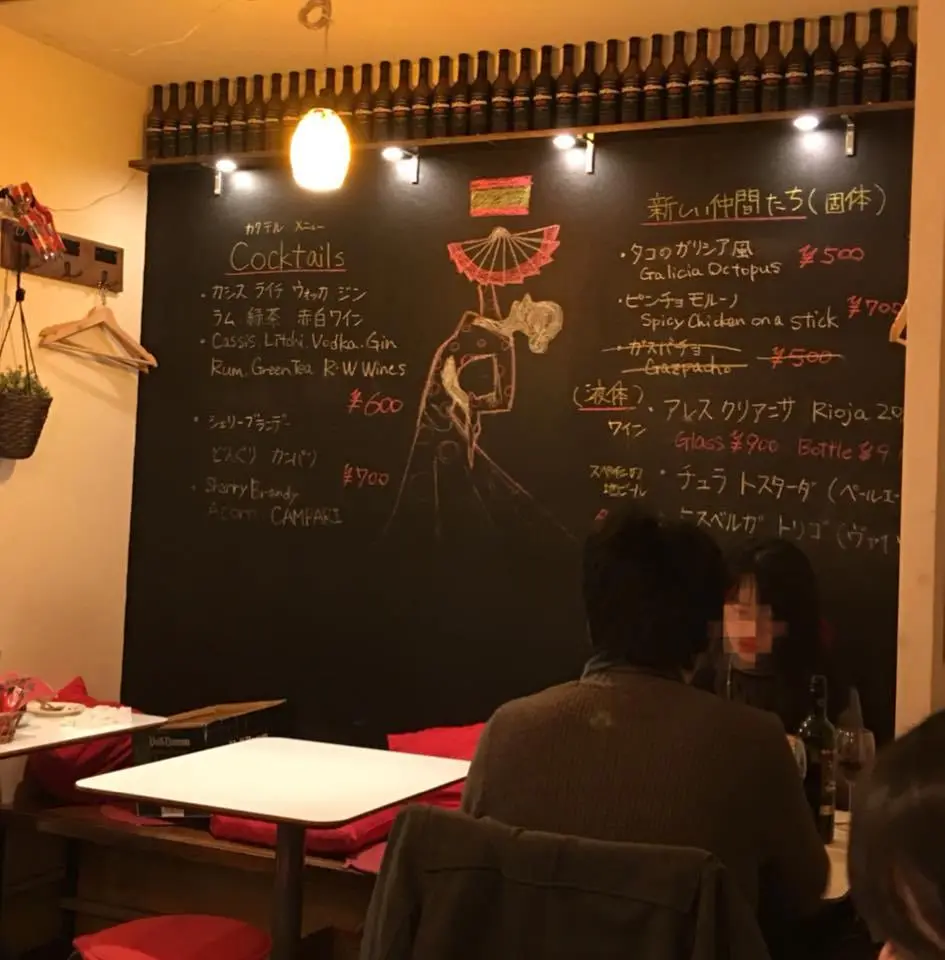 カクテル メニュー
Cocktails
・カシス ライチ ウォッカ ジン
ラム 緑茶 赤白ワイン
・Cassis. Litchi. Vodka. Gin
Rum. Green Tea R・W Wines
¥600
・シェリーブランデー
どんぐり カンパリ
¥700
・Sherry Brandy
Acorn CAMPARI
新しい仲間たち(固体)
・タコのガリシア風 ¥500
Galicia Octopus
・ピンチョモルーノ ¥700
Spicy Chicken on a stick
・ガスパチョ ¥500
Gazpacho
(液体)
ワイン
・アレス クリアニサ Rioja 20
Glass ¥900 Bottle ¥
スペインの
地ビール
・チュラ トスターダ (ペールエー
スベルガ トリゴ (ヴァイ